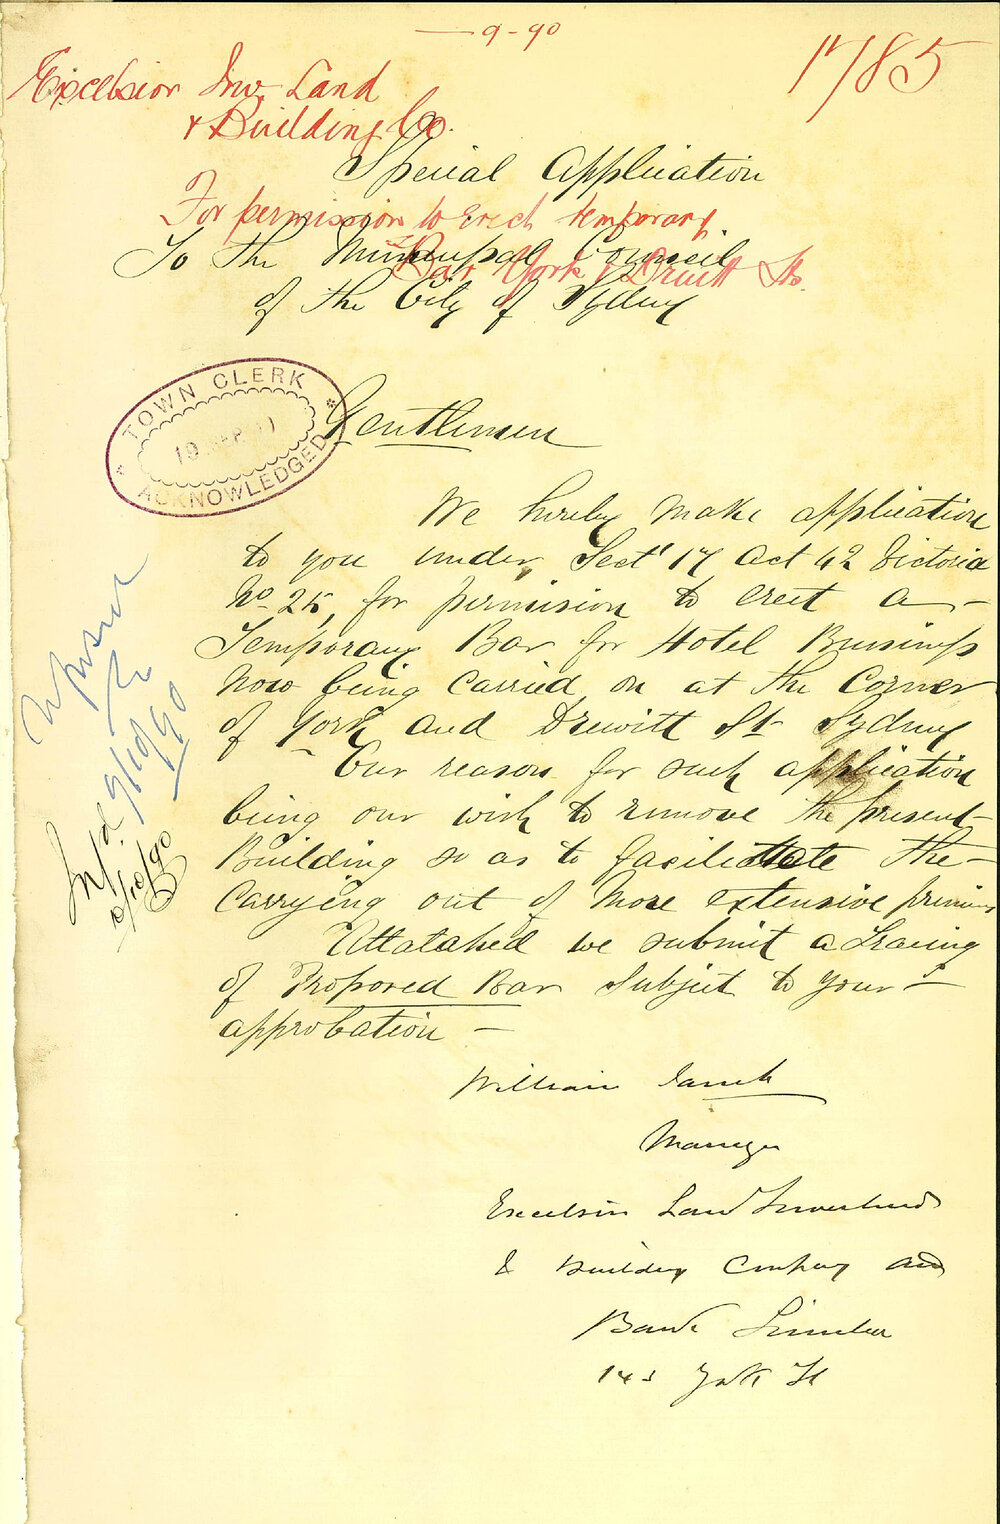 9-90
1785
Excelsior Inv. Land
& Building Co.
Special Application
For permission to Erect temporary
To The Municipal Council
Bar York & Druitt Sts.
of the City of Sydney
TOWN CLERK
19
ACKNOWLEDGED
Gentlemen
We hereby make application
to you under Sect 17 Act 42 Victoria
No 25, for permision to erect a
Temporary Bar for Hotel Buisiness
now being carried on at the Corner
of York and Drewitt St Sydney
Our reason for such application
being our wish to remove the present
Building so as to facilitate the
Carrying out of more extensive
Attatched we submit a Tracing
of Proposed Bar Subject to your
approbation
9/10/90
Infd.
9/10/90
William
Manager
Excelsior Land Investment
& Building Company and
Bank Limited
York St